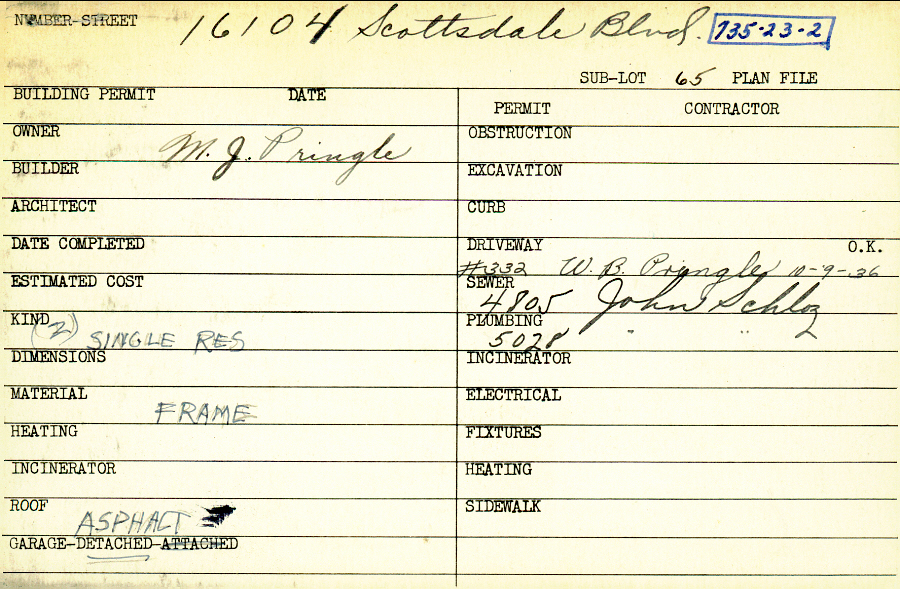 NUMBER-STREET 16104 Scottsdale Blvd. 735-23-2
SUB-LOT 65 PLAN FILE
BUILDING PERMIT DATE
PERMIT CONTRACTOR
OWNER M. J. Pringle
OBSTRUCTION
BUILDER
EXCAVATION
ARCHITECT
CURB
DATE COMPLETED
DRIVEWAY O.K.
#332 W. B. Pringle 10-9-36
ESTIMATED COST
SEWER
4805 John Schloz
KIND
(2) SINGLE RES
PLUMBING
5028 " "
DIMENSIONS
INCINERATOR
MATERIAL
FRAME
ELECTRICAL
HEATING
FIXTURES
INCINERATOR
HEATING
ROOF
ASPHALT
SIDEWALK
GARAGE-DETACHED-ATTACHED